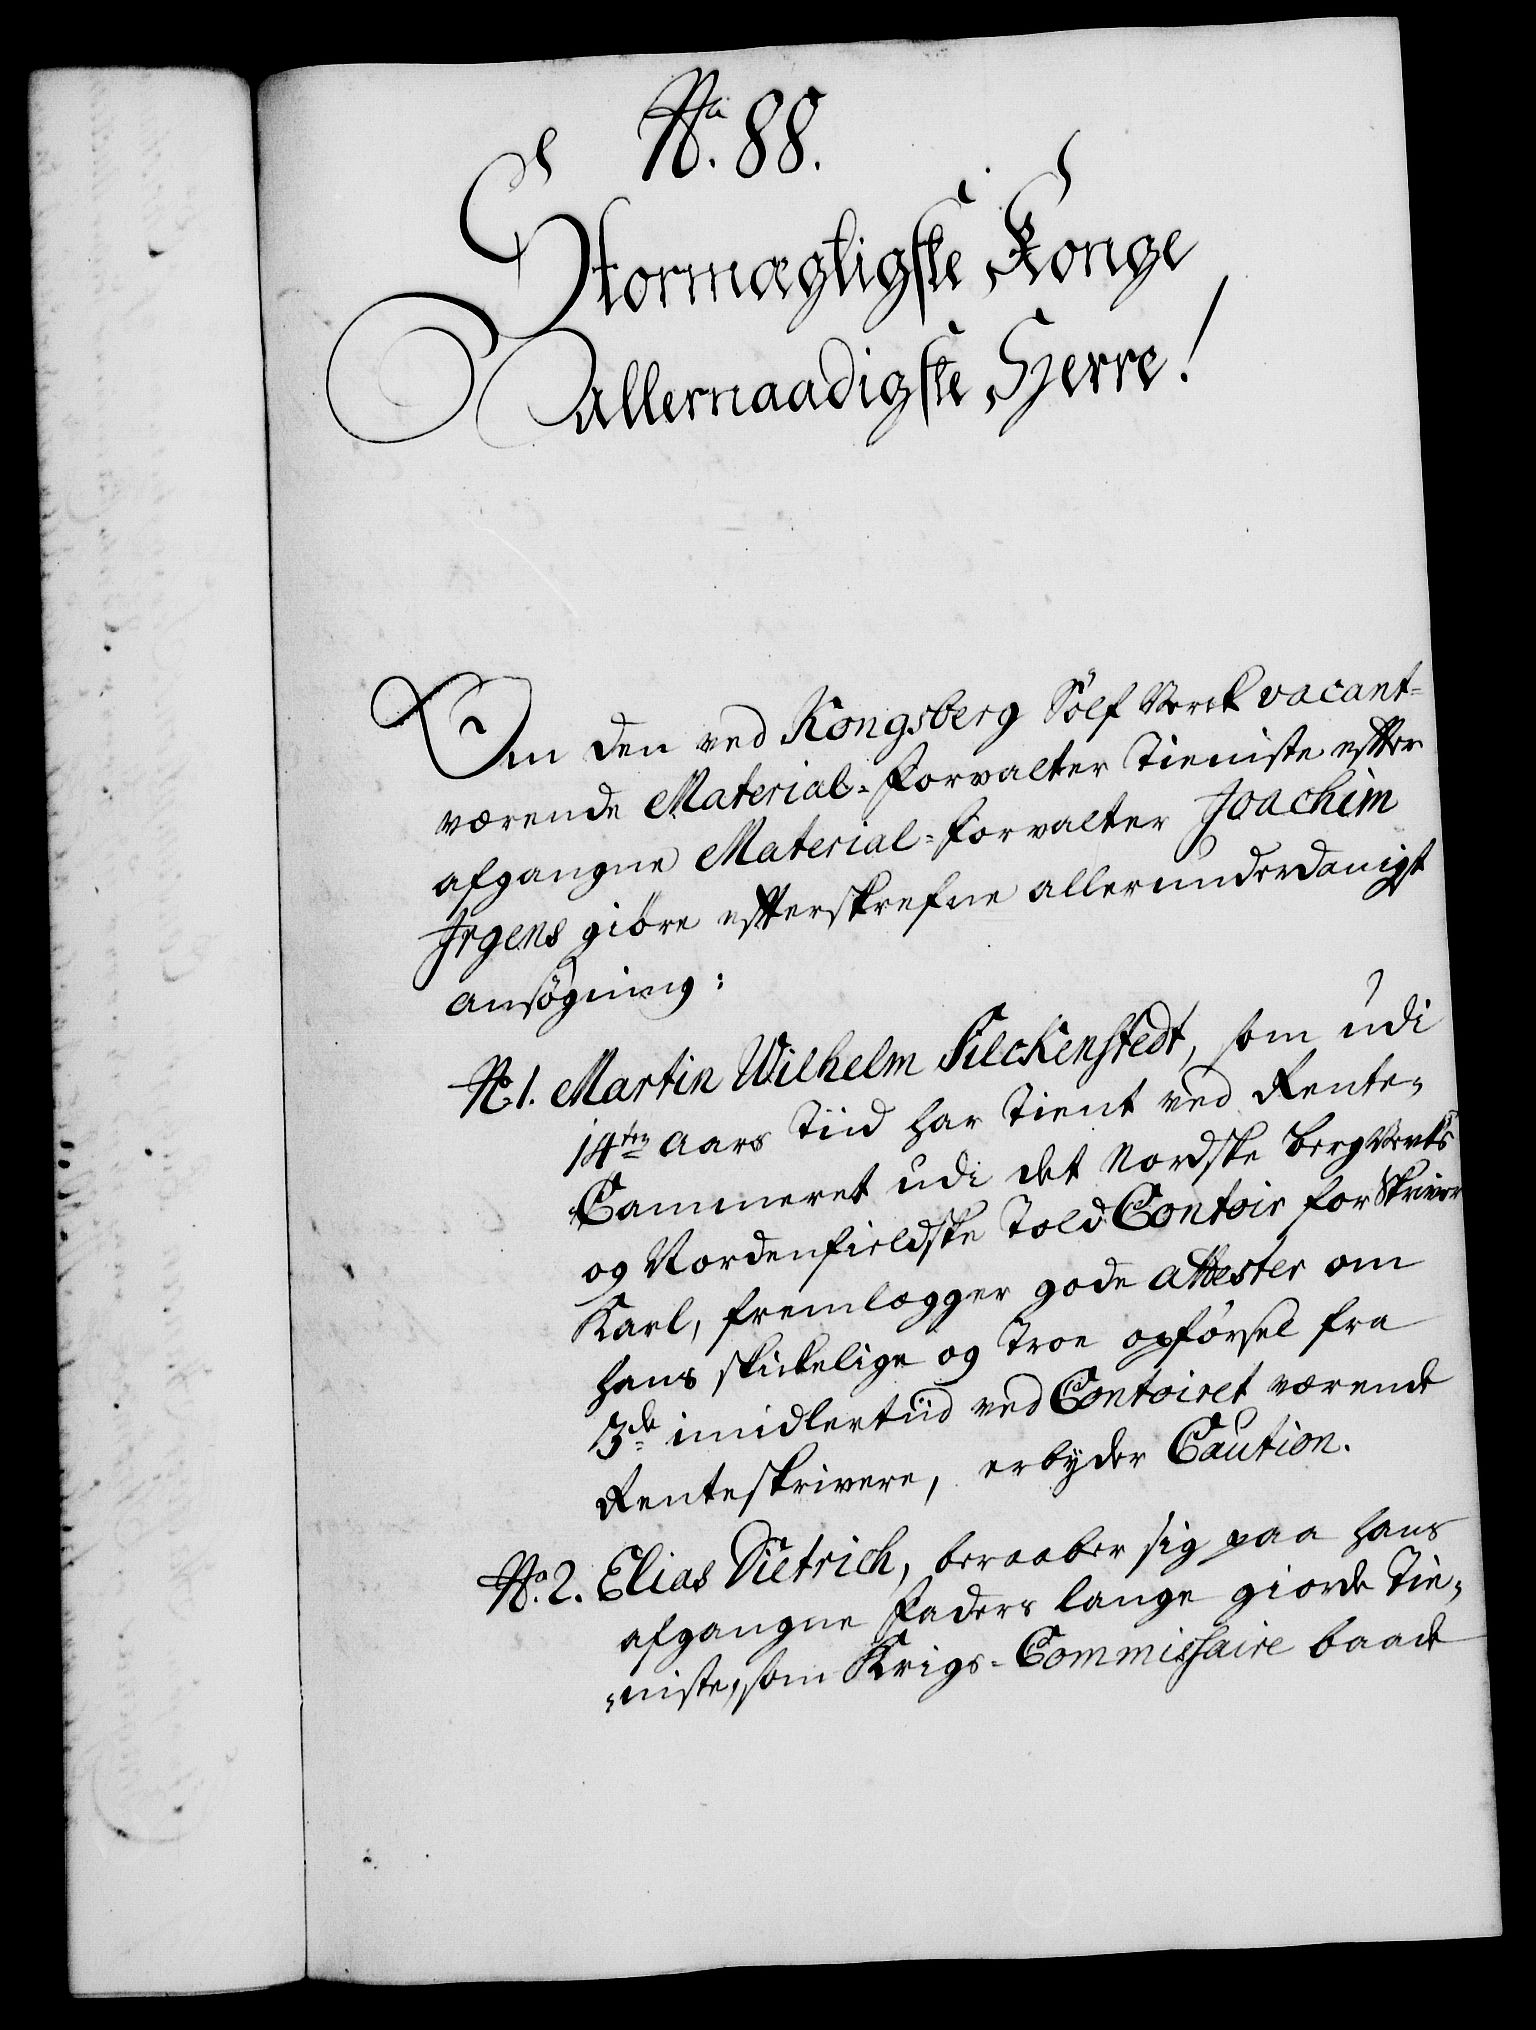 No. 88.
Stormægtigste Konge
allernaadigste Herre!
Om den ved Kongsberg Sølf Verck vacant-
værende Material-Forvalter Tieniste efter
afgangne Material-Forvalter Joachim
Irgens giøre efterskrefne allerunderdanigst
ansøgning:
No. 1. Martin Wilhelm Filckenstedt, som udi
14ten aars Tiid har tient ved Rente-
Cammeret udi det Nordske Berg Verks
og Nordenfieldske Told Contoir for Skriver
Karl, fremlægger gode attester om
hans skikelige og troe opførsel fra
3de imidlertiid ved Contoiret værende
Renteskrivere, erbyder Caution.
No. 2. Elias Dietrich, beraaber sig paa hans
afgangne Faders lange giorde Tie-
niste, som Krigs-Commissaire baade